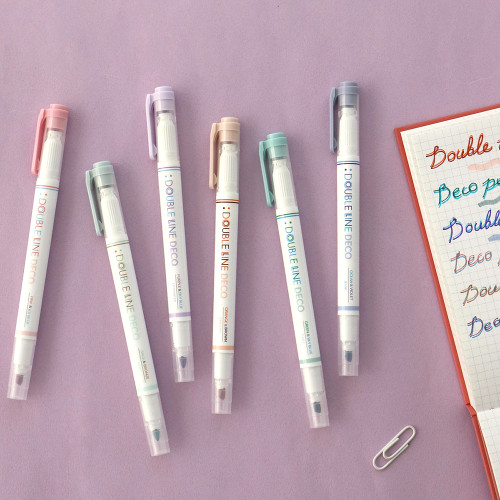 DOUBLE LINE DECO
DOUBLE LINE DECO
DOUBLE LINE DECO
DOUBLE LINE DECO
DOUBLE LINE DECO
DOUBLE LINE DECO
Double
Deco pe
Double
Deco p
Dou
Deco